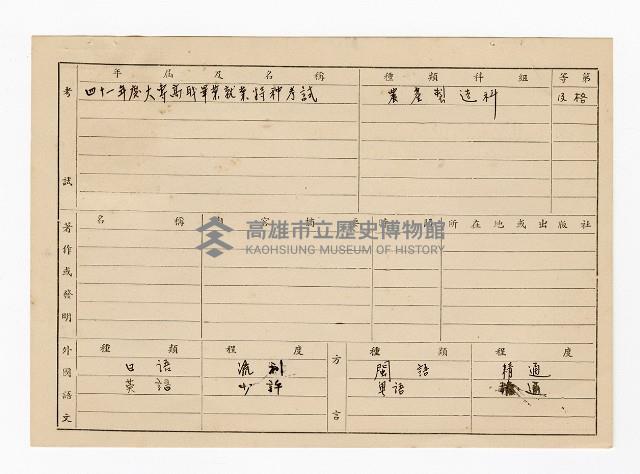 考試
年屆及名稱 種類科組 等第
四十一年度大專高職畢業就業特種考試 農產製造科 及格
著作或發明
名稱 內容摘要 時間 所在地或出版社
高雄市立歷史博物館
KAOHSIUNG MUSEUM OF HISTORY
外國語文 方言
種類 程度 種類 程度
日語 流利 閩語 精通
英語 少許 粵語 通